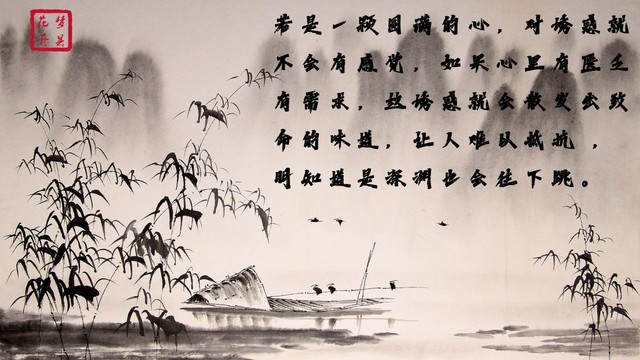 若是一颗圆满的心，对诱惑就
不会有感觉，如果心里有匮乏
有需求，丝诱惑就会散发出致
命的味道，让人难以抵抗，
明知道是深渊也会往下跳。